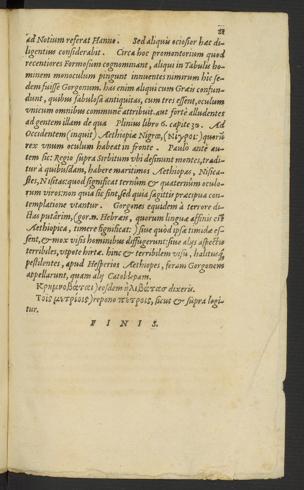 28
ad Notium referat Hanno. Sed aliquis ociosior hæc di-
ligentius considerabit. Circa hoc promontorium quod
recentiores Formosum cognominant, aliqui in Tabulis ho-
minem monoculum pingunt innuentes nimirum hîc se-
dem fuisse Gorgonum. has enim aliqui cum Græis confun-
dunt, quibus fabulosa antiquitas, cum tres essent, oculum
vnicum omnibus commune attribuit. aut fortè alludentes
ad gentem illam de qua Plinius libro 6. capite 30. Ad
Occidentem (inquit) Aethiopiæ Nigroæ, (Νίγροε:) quorũ
rex vnum oculum habeat in fronte. Paulo ante au-
tem sic: Regio supra Sirbitum vbi desinunt montes, tradi-
tur à quibusdam, habere maritimos Aethiopas, Nisica-
stes, Nisitas: quod significat ternûm & quaternûm oculo-
rum viros: non quia sic sint, sed quia sagittis præcipua con-
templatione vtantur. Gorgones equidem à terrore di-
ctas putârim, (gor. Hebræis, quorum lingua affinis est
Aethiopica, timere significat:) siue quòd ipsæ timidæ es-
sent, & mox visis hominibus diffugerint: siue alijs aspectu
terribiles, vtpote hirtæ. hinc & terribilem visu, halituq́;
pestilentes, apud Hesperios Aethiopes, feram Gorgonem
appellarunt, quam alij Catoblepam.
Κρημνοβάται) eosdem ἠλιβάτας dixeris.
Τοῖς μυτρίοις) repono πύτροις, sicut & supra legi-
tur.
FINIS.